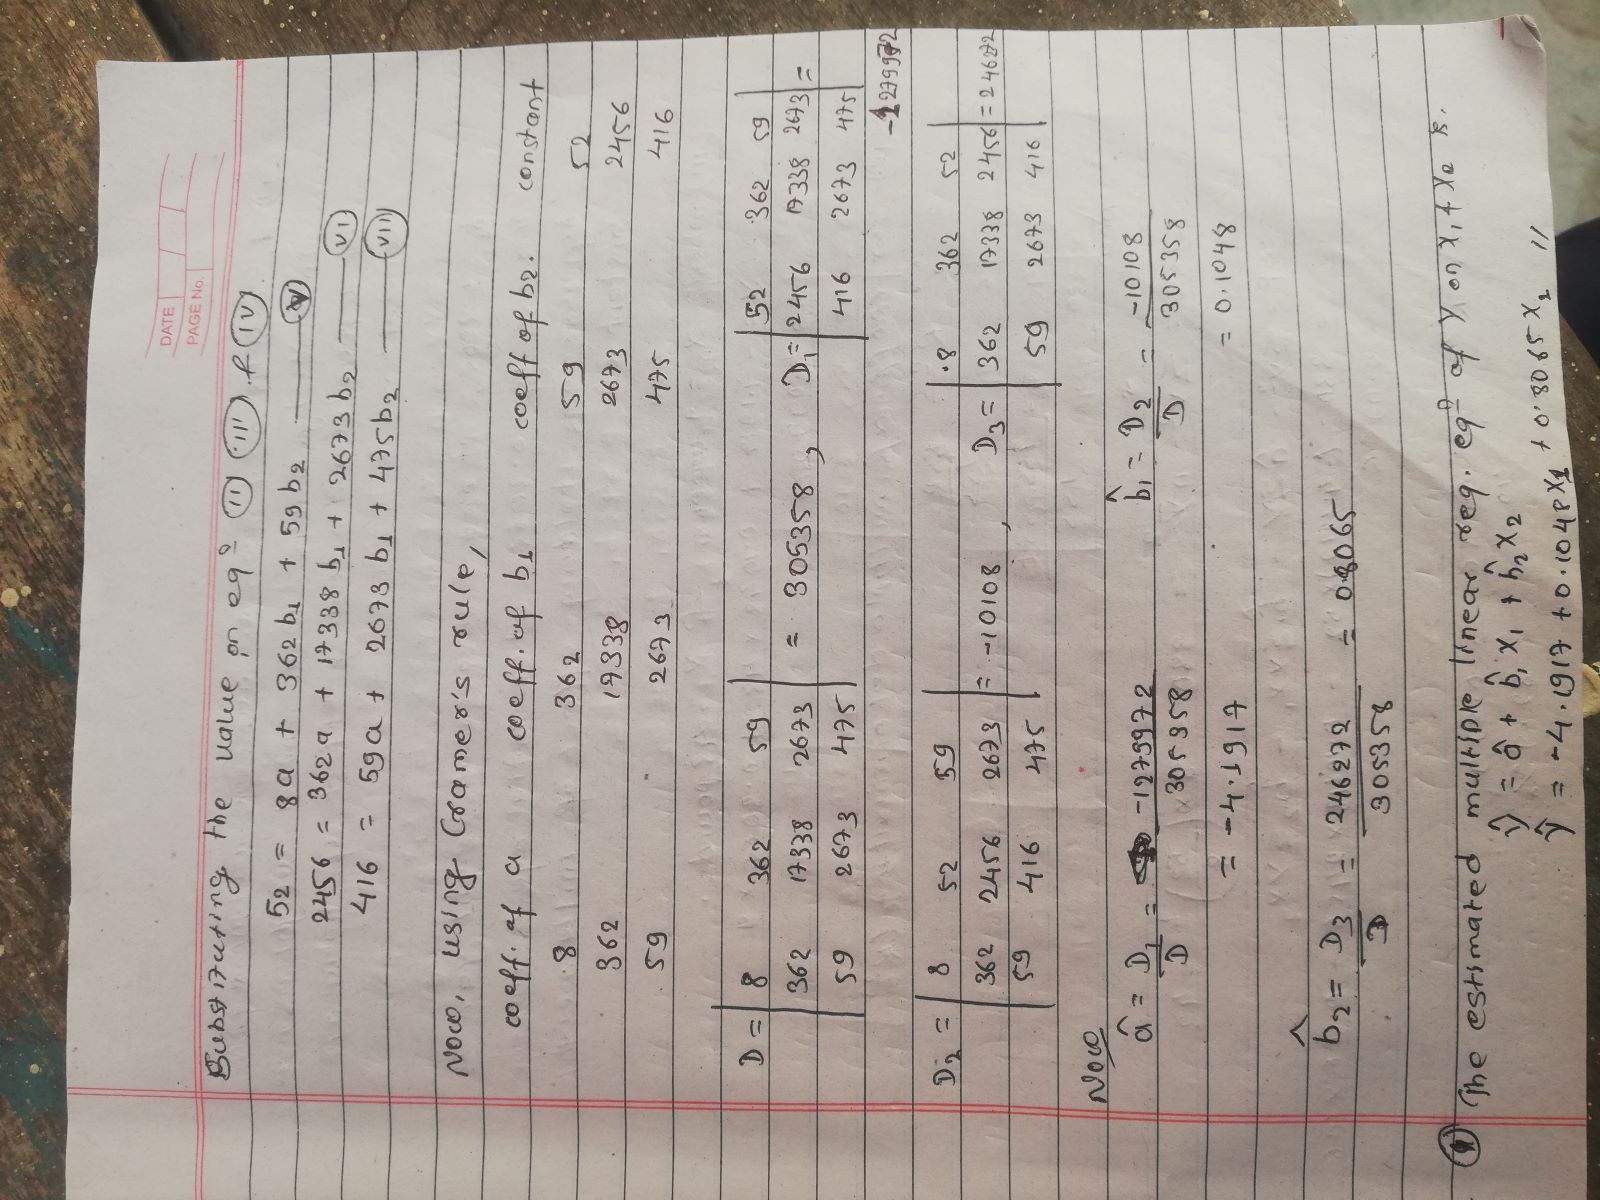 DATE
PAGE No.
Substituting the value on eqⁿ (ii) (iii) & (iv)
52 = 8a + 362b₁ + 59b₂ —— (v)
2456 = 362a + 17338b₁ + 2673b₂ —— (vi)
416 = 59a + 2673b₁ + 475b₂ —— (vii)
Now, using Cramer's rule,
coeff. of a coeff. of b₁ coeff of b₂. constant
8 362 59 52
362 17338 2673 2456
59 2673 475 416
D = | 8 362 59 | D₁ = | 52 362 59 |
| 362 17338 2673 | = 305358, | 2456 17338 2673 | =
| 59 2673 475 | | 416 2673 475 |
-1279972
D₂ = | 8 52 59 | | 8 362 52 |
| 362 2456 2673 | = -10108, D₃ = | 362 17338 2456 | = 246272
| 59 416 475 | | 59 2673 416 |
Now
â = D₁/D = -1279972/305358 b̂₁ = D₂/D = -10108/305358
= -4.1917 = 0.1048
b̂₂ = D₃/D = 246272/305358 = 0.8065
The estimated multiple linear reg. eqⁿ of Y on X₁ & X₂ is.
Ŷ = â + b̂₁X₁ + b̂₂X₂
Ŷ = -4.1917 + 0.1048X₁ + 0.8065X₂ //